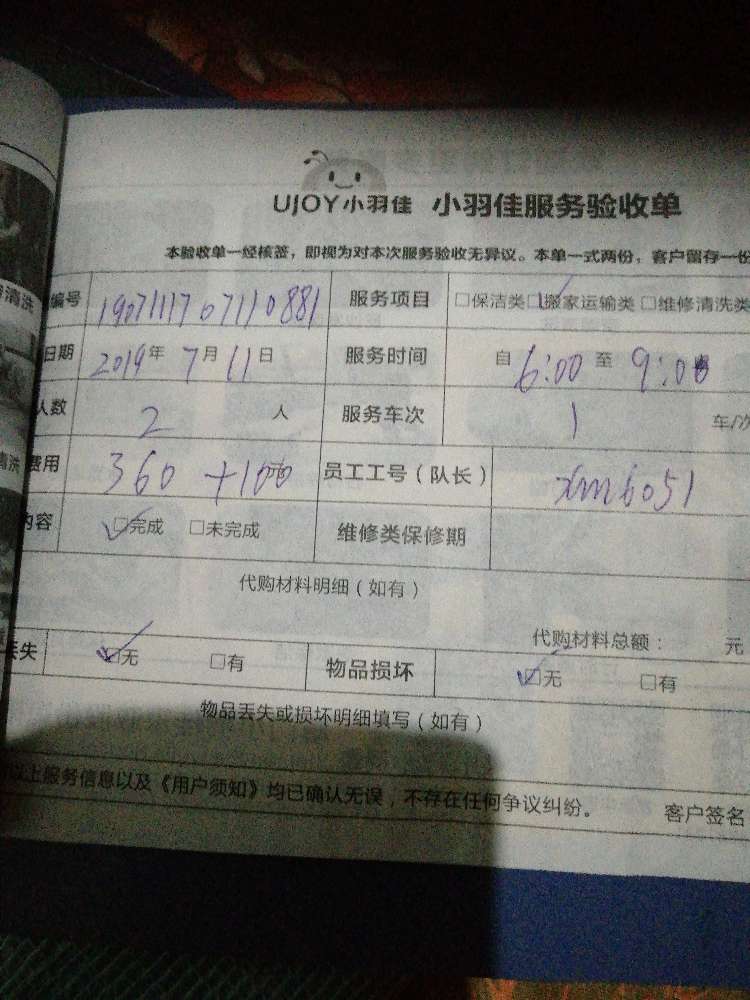 UJOY小羽佳 小羽佳服务验收单
本验收单一经核签，即视为对本次服务验收无异议。本单一式两份，客户留存一份
编号 1907111707110881 服务项目 □保洁类□搬家运输类□维修清洗类
日期 2019年7月11日 服务时间 自6:00至9:00
人数 2 人 服务车次 1 车/次
清洗
费用 360 +100 员工工号（队长） xm6051
内容 □完成 □未完成 维修类保修期
代购材料明细（如有）
代购材料总额： 元
丢失 □无 □有 物品损坏 □无 □有
物品丢失或损坏明细填写（如有）
以上服务信息以及《用户须知》均已确认无误，不存在任何争议纠纷。 客户签名